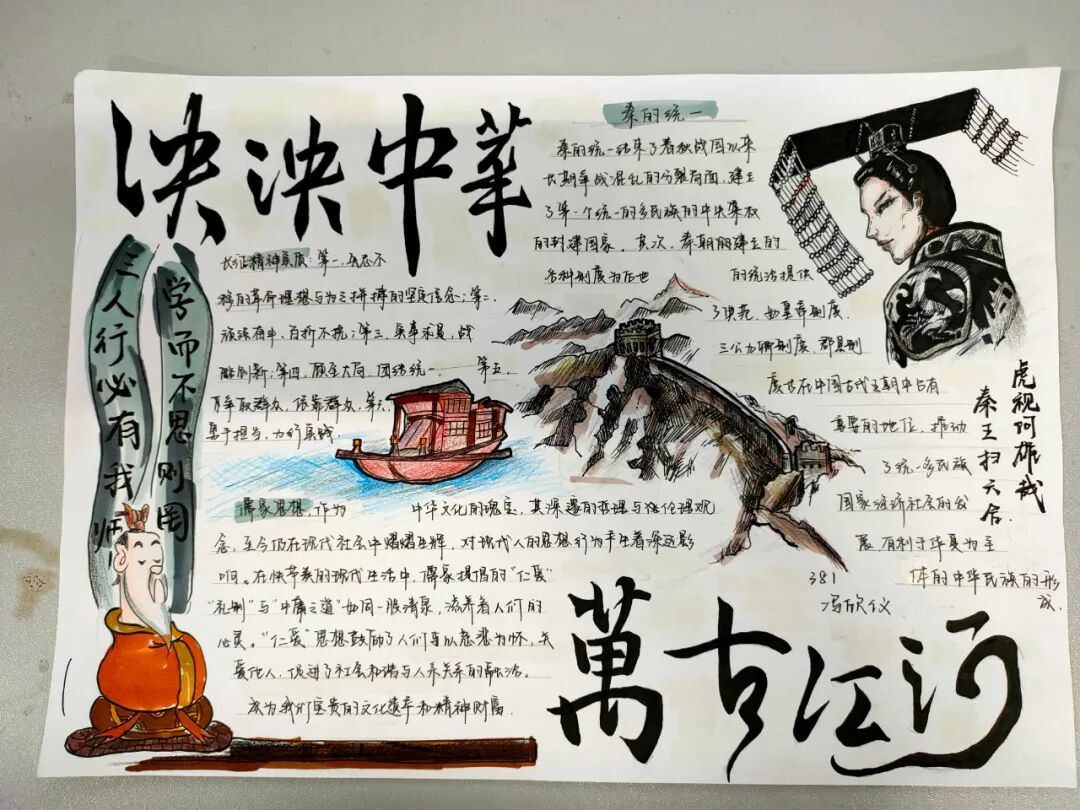 泱泱中華
秦的统一
秦的统一结束了春秋战国以来
长期争战混乱的分裂局面,建立
了第一个统一的多民族的中央集权
的封建国家。其次,秦朝所建立的
各种制度为后世的统治提供
了典范,如皇帝制度、
三公九卿制度、郡县制
度等在中国古代王朝中占有
重要的地位,推动
了统一多民族
国家经济社会的发
展,有利于华夏为主
体的中华民族的形
成
虎视何雄哉
秦王扫六合
长征精神实质:第一,
移的革命理想与为之拼搏的坚定信念;第二,
百折不挠;第三,实事求是,战
略创新;第四,顾全大局,团结统一。第五,
争取群众,依靠群众,第六,
勇于担当,力行实践
三人行必有我师
学而不思则罔
儒家思想,作为中华文化的瑰宝,其深邃的哲理与伦理观
念,至今仍在现代社会中熠熠生辉,对现代人的思想行为产生着深远影
响。在快节奏的现代生活中,儒家提倡的“仁爱”
“礼制”与“中庸之道”如同一股清泉,滋养着人们的
心灵。“仁爱”思想鼓励了人们要以慈悲为怀,关
爱他人,促进了社会和谐与人际关系的融洽。
成为我们宝贵的文化遗产和精神财富
381
冯欣仪
萬古江河